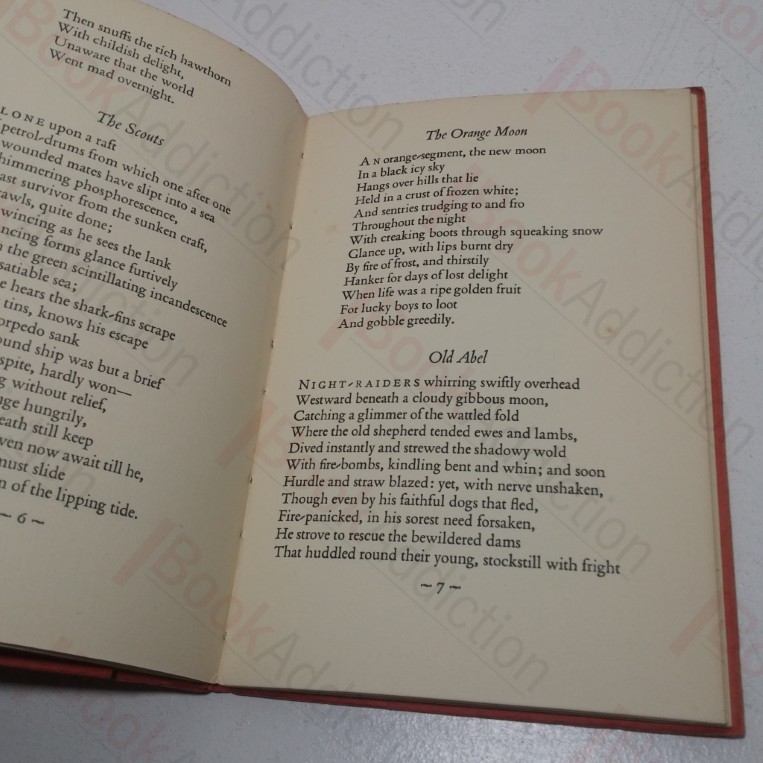 Then snuffs the rich hawthorn
With childish delight,
Unaware that the world
Went mad overnight.
The Scouts
LONE upon a raft
petrol-drums from which one after one
wounded mates have slipt into a sea
himmering phosphorescence,
ast survivor from the sunken craft,
awls, quite done;
wincing as he sees the lank
ncing forms glance furtively
the green scintillating incandescence
satiable sea;
e hears the shark-fins scrape
tins, knows his escape
orpedo sank
ound ship was but a brief
spite, hardly won—
g without relief,
ge hungrily,
eath still keep
ven now await till he,
must slide
n of the lipping tide.
~ 6 ~
The Orange Moon
AN orange-segment, the new moon
In a black icy sky
Hangs over hills that lie
Held in a crust of frozen white;
And sentries trudging to and fro
Throughout the night
With creaking boots through squeaking snow
Glance up, with lips burnt dry
By fire of frost, and thirstily
Hanker for days of lost delight
When life was a ripe golden fruit
For lucky boys to loot
And gobble greedily.
Old Abel
NIGHT-RAIDERS whirring swiftly overhead
Westward beneath a cloudy gibbous moon,
Catching a glimmer of the wattled fold
Where the old shepherd tended ewes and lambs,
Dived instantly and strewed the shadowy wold
With fire-bombs, kindling bent and whin; and soon
Hurdle and straw blazed: yet, with nerve unshaken,
Though even by his faithful dogs that fled,
Fire-panicked, in his sorest need forsaken,
He strove to rescue the bewildered dams
That huddled round their young, stockstill with fright
~ 7 ~
BookAddiction